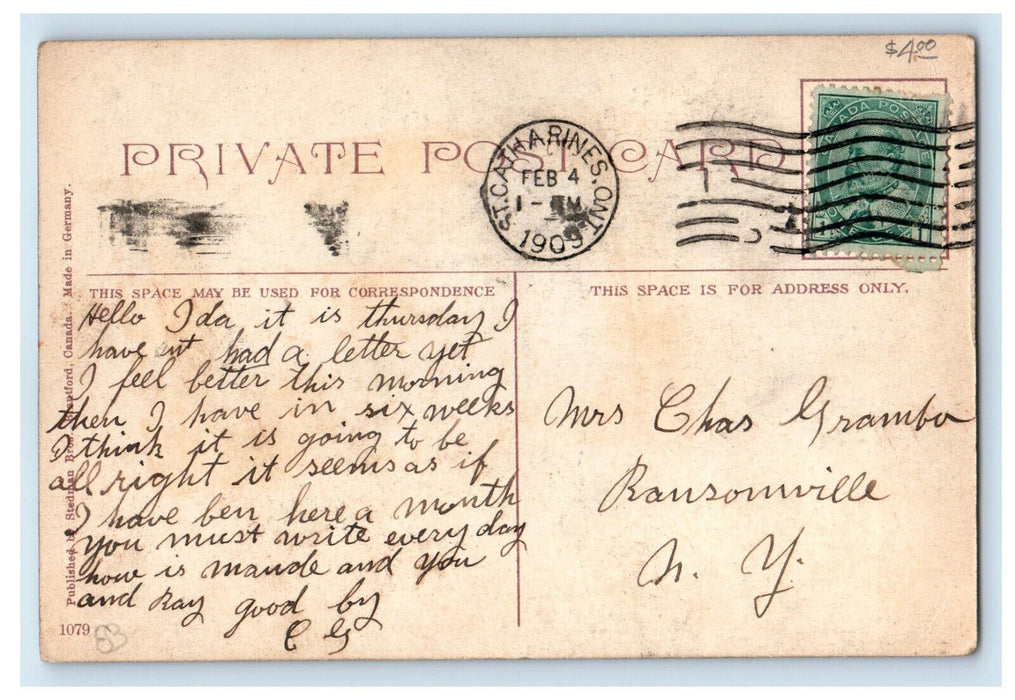 $4.00
PRIVATE POST CARD
ST. CATHARINES. ONT.
FEB 4
1909
CANADA POSTAGE
THIS SPACE MAY BE USED FOR CORRESPONDENCE
THIS SPACE IS FOR ADDRESS ONLY.
Hello Ida it is thursday I
have int had a letter yet
I feel better this morning
then I have in six weeks
I think it is going to be
all right it seems as if
I have ben here a month
you must write every day
how is maude and you
and Ray good by
C G
Mrs Chas Grambo
Ransomville
N. Y.
Published by Stedman Bros. Brantford, Canada. Made in Germany.
1079